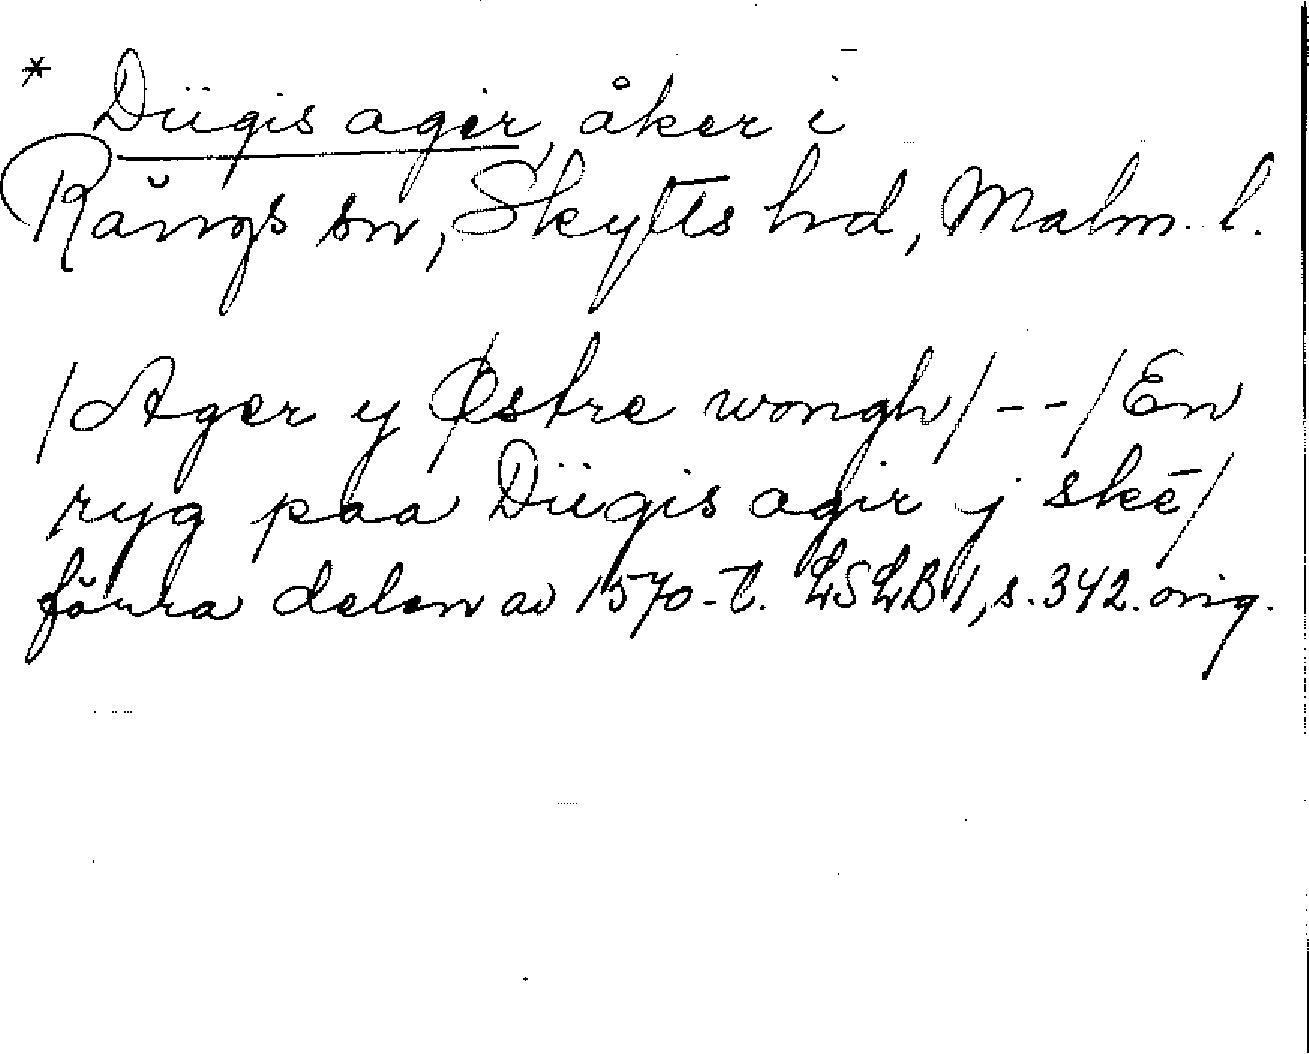 * Diigis agir, åker i
Rängs sn, Skytts hd, Malm. l.
/Ager y Østre wongh/--/En
ryg paa Diigis agir j skē/
förra delen av 1570-t. LSLB 1, s. 342. orig.